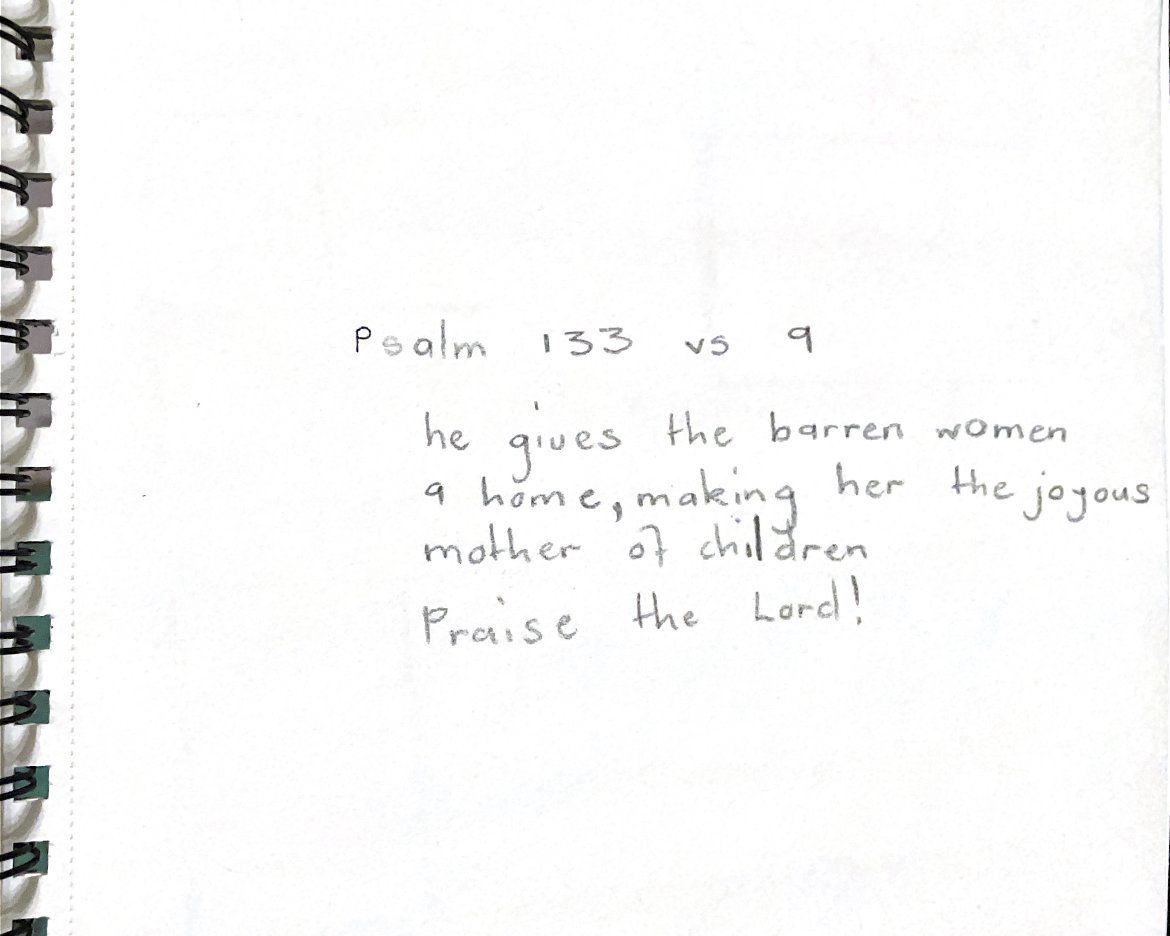 Psalm 133 vs 9
he gives the barren women
a home, making her the joyous
mother of children
Praise the Lord!